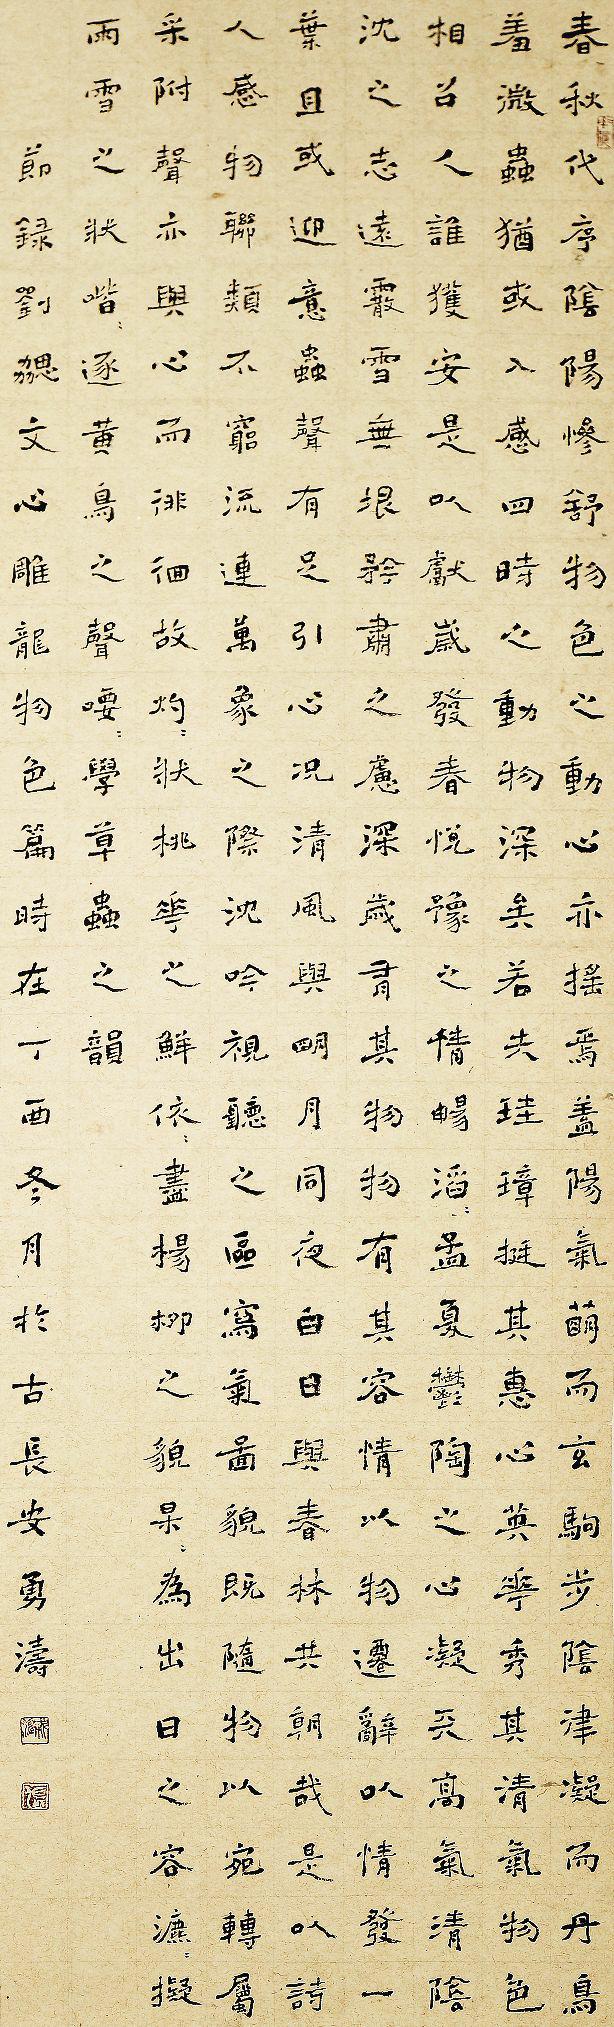 春秋代序陰陽慘舒物色之動心亦搖焉蓋陽氣萌而玄駒步陰津凝而丹鳥
羞微蟲猶或入感四時之動物深矣若夫珪璋挺其惠心英華秀其清氣物色
相召人誰獲安是以獻歲發春悅豫之情暢滔々孟夏鬱陶之心凝天高氣清陰
沈之志遠霰雪無垠矜肅之慮深歲有其物物有其容情以物遷辭以情發一
葉且或迎意蟲聲有足引心況清風與明月同夜白日與春林共朝哉是以詩
人感物聯類不窮流連萬象之際沈吟視聽之區寫氣圖貌既隨物以宛轉屬
采附聲亦與心而徘徊故灼々狀桃華之鮮依々盡楊柳之貌杲々為出日之容瀌々擬
雨雪之狀喈々逐黃鳥之聲喓々學草蟲之韻
節錄劉勰文心雕龍物色篇時在丁酉冬月於古長安勇濤